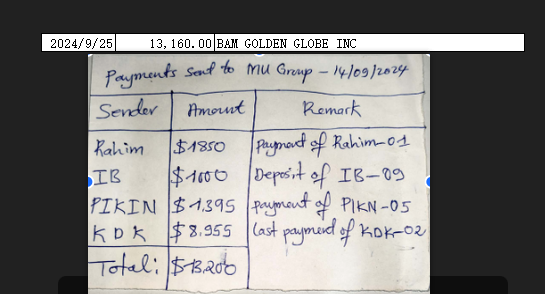 2024/9/25 13,160.00 BAM GOLDEN GLOBE INC
Payments Sent to MU Group - 14/09/2024
Sender Amount Remark
Rahim $1850 Payment of Rahim-01
IB $1000 Deposit of IB-09
PIKIN $1,395 payment of PIKN-05
KDK $8,955 Last payment of KDK-02
Total: $13,200